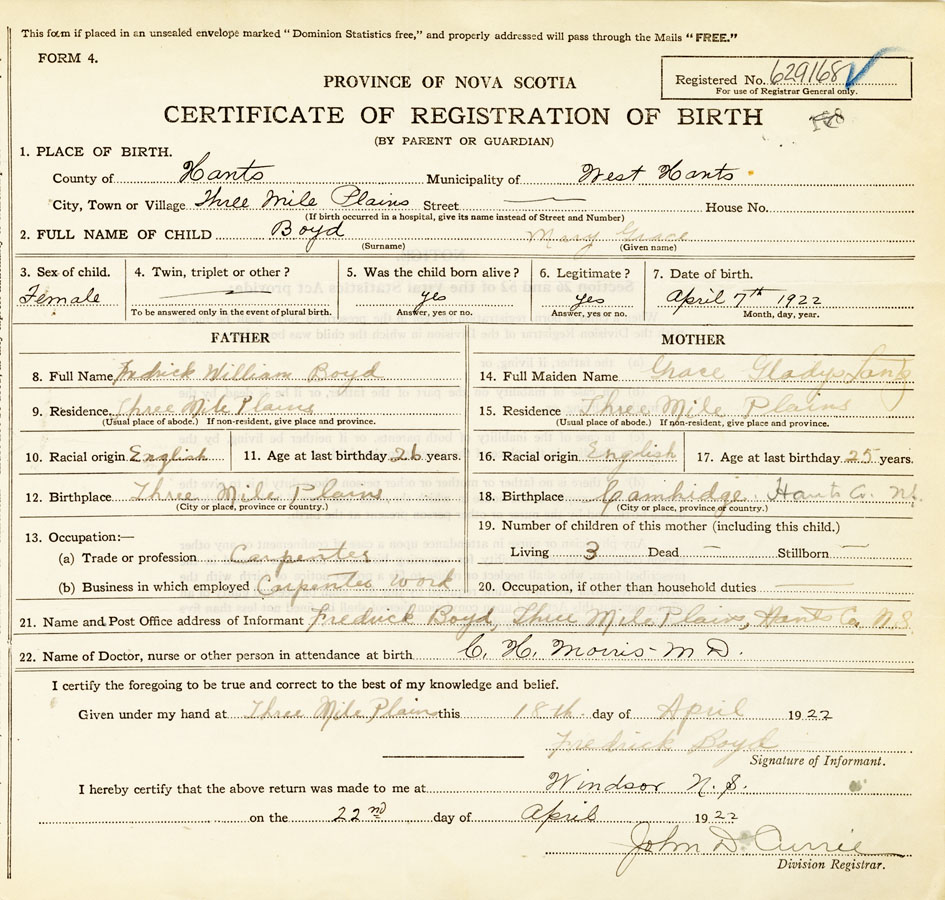 This form if placed in an unsealed envelope marked "Dominion Statistics free," and properly addressed will pass through the Mails "FREE."
FORM 4.
Registered No. 629168
For use of Registrar General only.
PROVINCE OF NOVA SCOTIA
CERTIFICATE OF REGISTRATION OF BIRTH
(BY PARENT OR GUARDIAN)
1. PLACE OF BIRTH.
County of Hants Municipality of West Hants
City, Town or Village Three Mile Plains Street — House No.
(If birth occurred in a hospital, give its name instead of Street and Number)
2. FULL NAME OF CHILD Boyd Mary Grace
(Surname) (Given name)
3. Sex of child. 4. Twin, triplet or other? 5. Was the child born alive? 6. Legitimate? 7. Date of birth.
Female — yes yes April 7th 1922
To be answered only in the event of plural birth. Answer, yes or no. Answer, yes or no. Month, day, year.
FATHER MOTHER
8. Full Name Fredrick William Boyd 14. Full Maiden Name Grace Gladys
9. Residence. Three Mile Plains 15. Residence Three Mile Plains
(Usual place of abode.) If non-resident, give place and province. (Usual place of abode.) If non-resident, give place and province.
10. Racial origin English 11. Age at last birthday 26 years. 16. Racial origin English 17. Age at last birthday 25 years.
12. Birthplace Three Mile Plains 18. Birthplace Cambridge Hants Co. N.S.
(City or place, province or country.) (City or place, province or country.)
13. Occupation:— 19. Number of children of this mother (including this child.)
(a) Trade or profession Carpenter Living 3 Dead — Stillborn —
(b) Business in which employed Carpenter Work 20. Occupation, if other than household duties —
21. Name and Post Office address of Informant Fredrick Boyd, Three Mile Plains, Hants Co. N.S.
22. Name of Doctor, nurse or other person in attendance at birth C. H. Morris - M D.
I certify the foregoing to be true and correct to the best of my knowledge and belief.
Given under my hand at Three Mile Plains this 18th. day of April 1922
Fredrick Boyd
Signature of Informant.
I hereby certify that the above return was made to me at Windsor N.S.
on the 22nd day of April 1922
John D. Currie
Division Registrar.